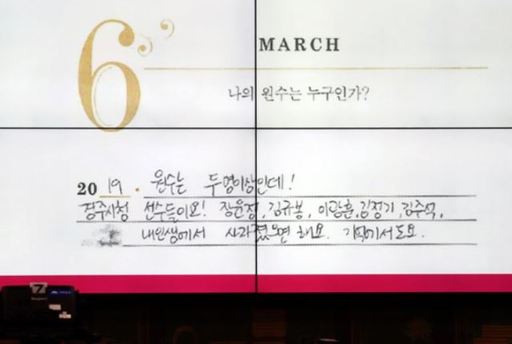 6 MARCH
나의 원수는 누구인가?
2019. 원수는 두명이상인데!
경주시청 선수들이요! 장윤정, 김규봉, 이광훈, 김정기, 김주석,
내인생에서 사라졌으면 해요. 기억에서도요.